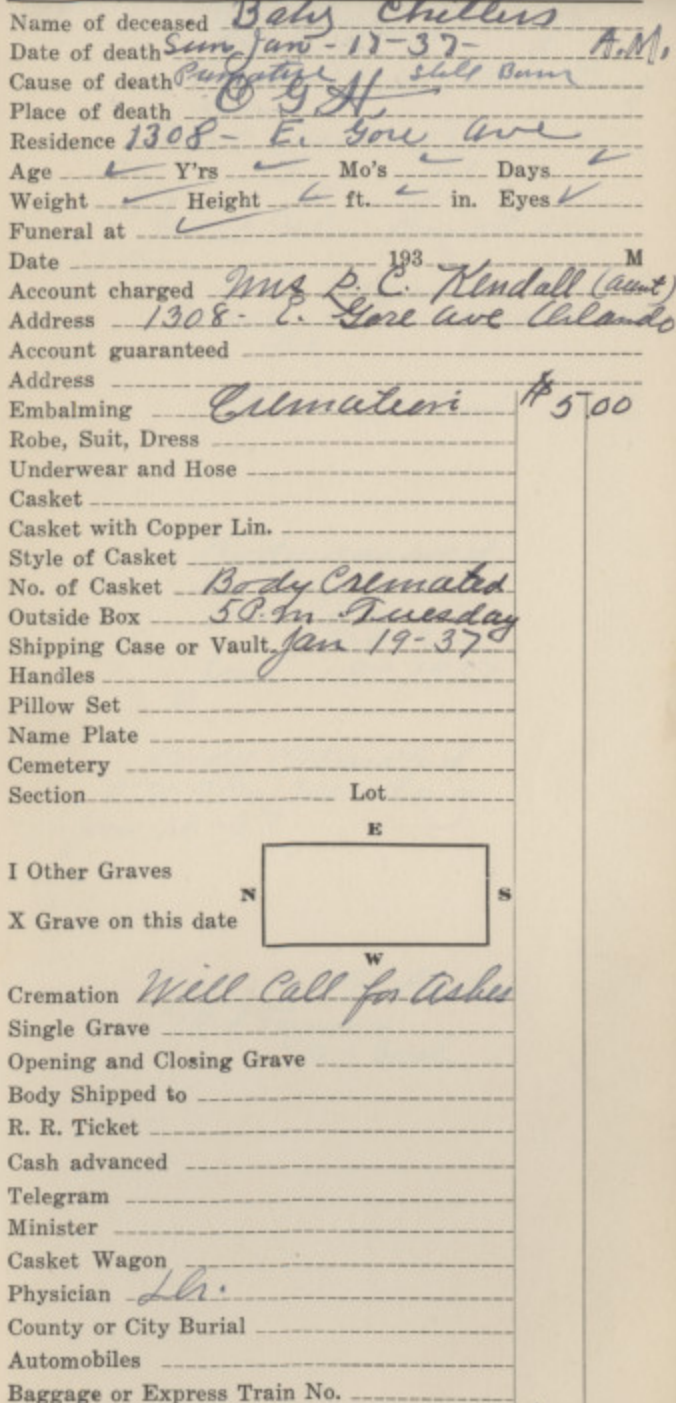 Name of deceased Baby Chillers
Date of death Sun Jan - 17-37- A.M.
Cause of death Premature Still Born
Place of death O G H
Residence 1308 - E. Gore ave
Age Y'rs Mo's Days
Weight Height ft. in. Eyes
Funeral at
Date 193 M
Account charged Mrs R. C. Kendall (aunt)
Address 1308 - E. Gore ave Orlando
Account guaranteed
Address
Embalming Cremation $5.00
Robe, Suit, Dress
Underwear and Hose
Casket
Casket with Copper Lin.
Style of Casket
No. of Casket Body Cremated
Outside Box 5 P.m Tuesday
Shipping Case or Vault Jan 19-37
Handles
Pillow Set
Name Plate
Cemetery
Section Lot
E
I Other Graves
N S
X Grave on this date
W
Cremation Will Call for Ashes
Single Grave
Opening and Closing Grave
Body Shipped to
R. R. Ticket
Cash advanced
Telegram
Minister
Casket Wagon
Physician Dr.
County or City Burial
Automobiles
Baggage or Express Train No.